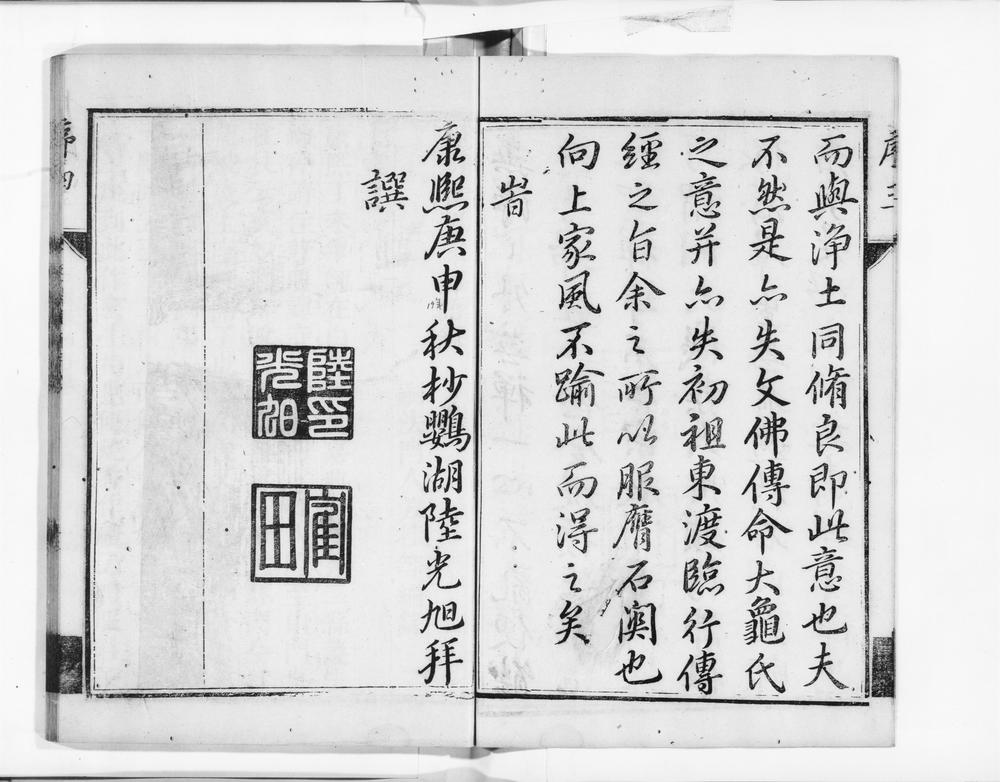 序三
而與淨土同脩良即此意也夫
不然是亦失文佛傳命大龜氏
之意并亦失初祖東渡臨行傳
經之旨余之所以服膺石奧也
向上家風不踰此而得之矣
旹
康熙庚申秋杪鸚湖陸光旭拜
譔
陸光旭印
序四